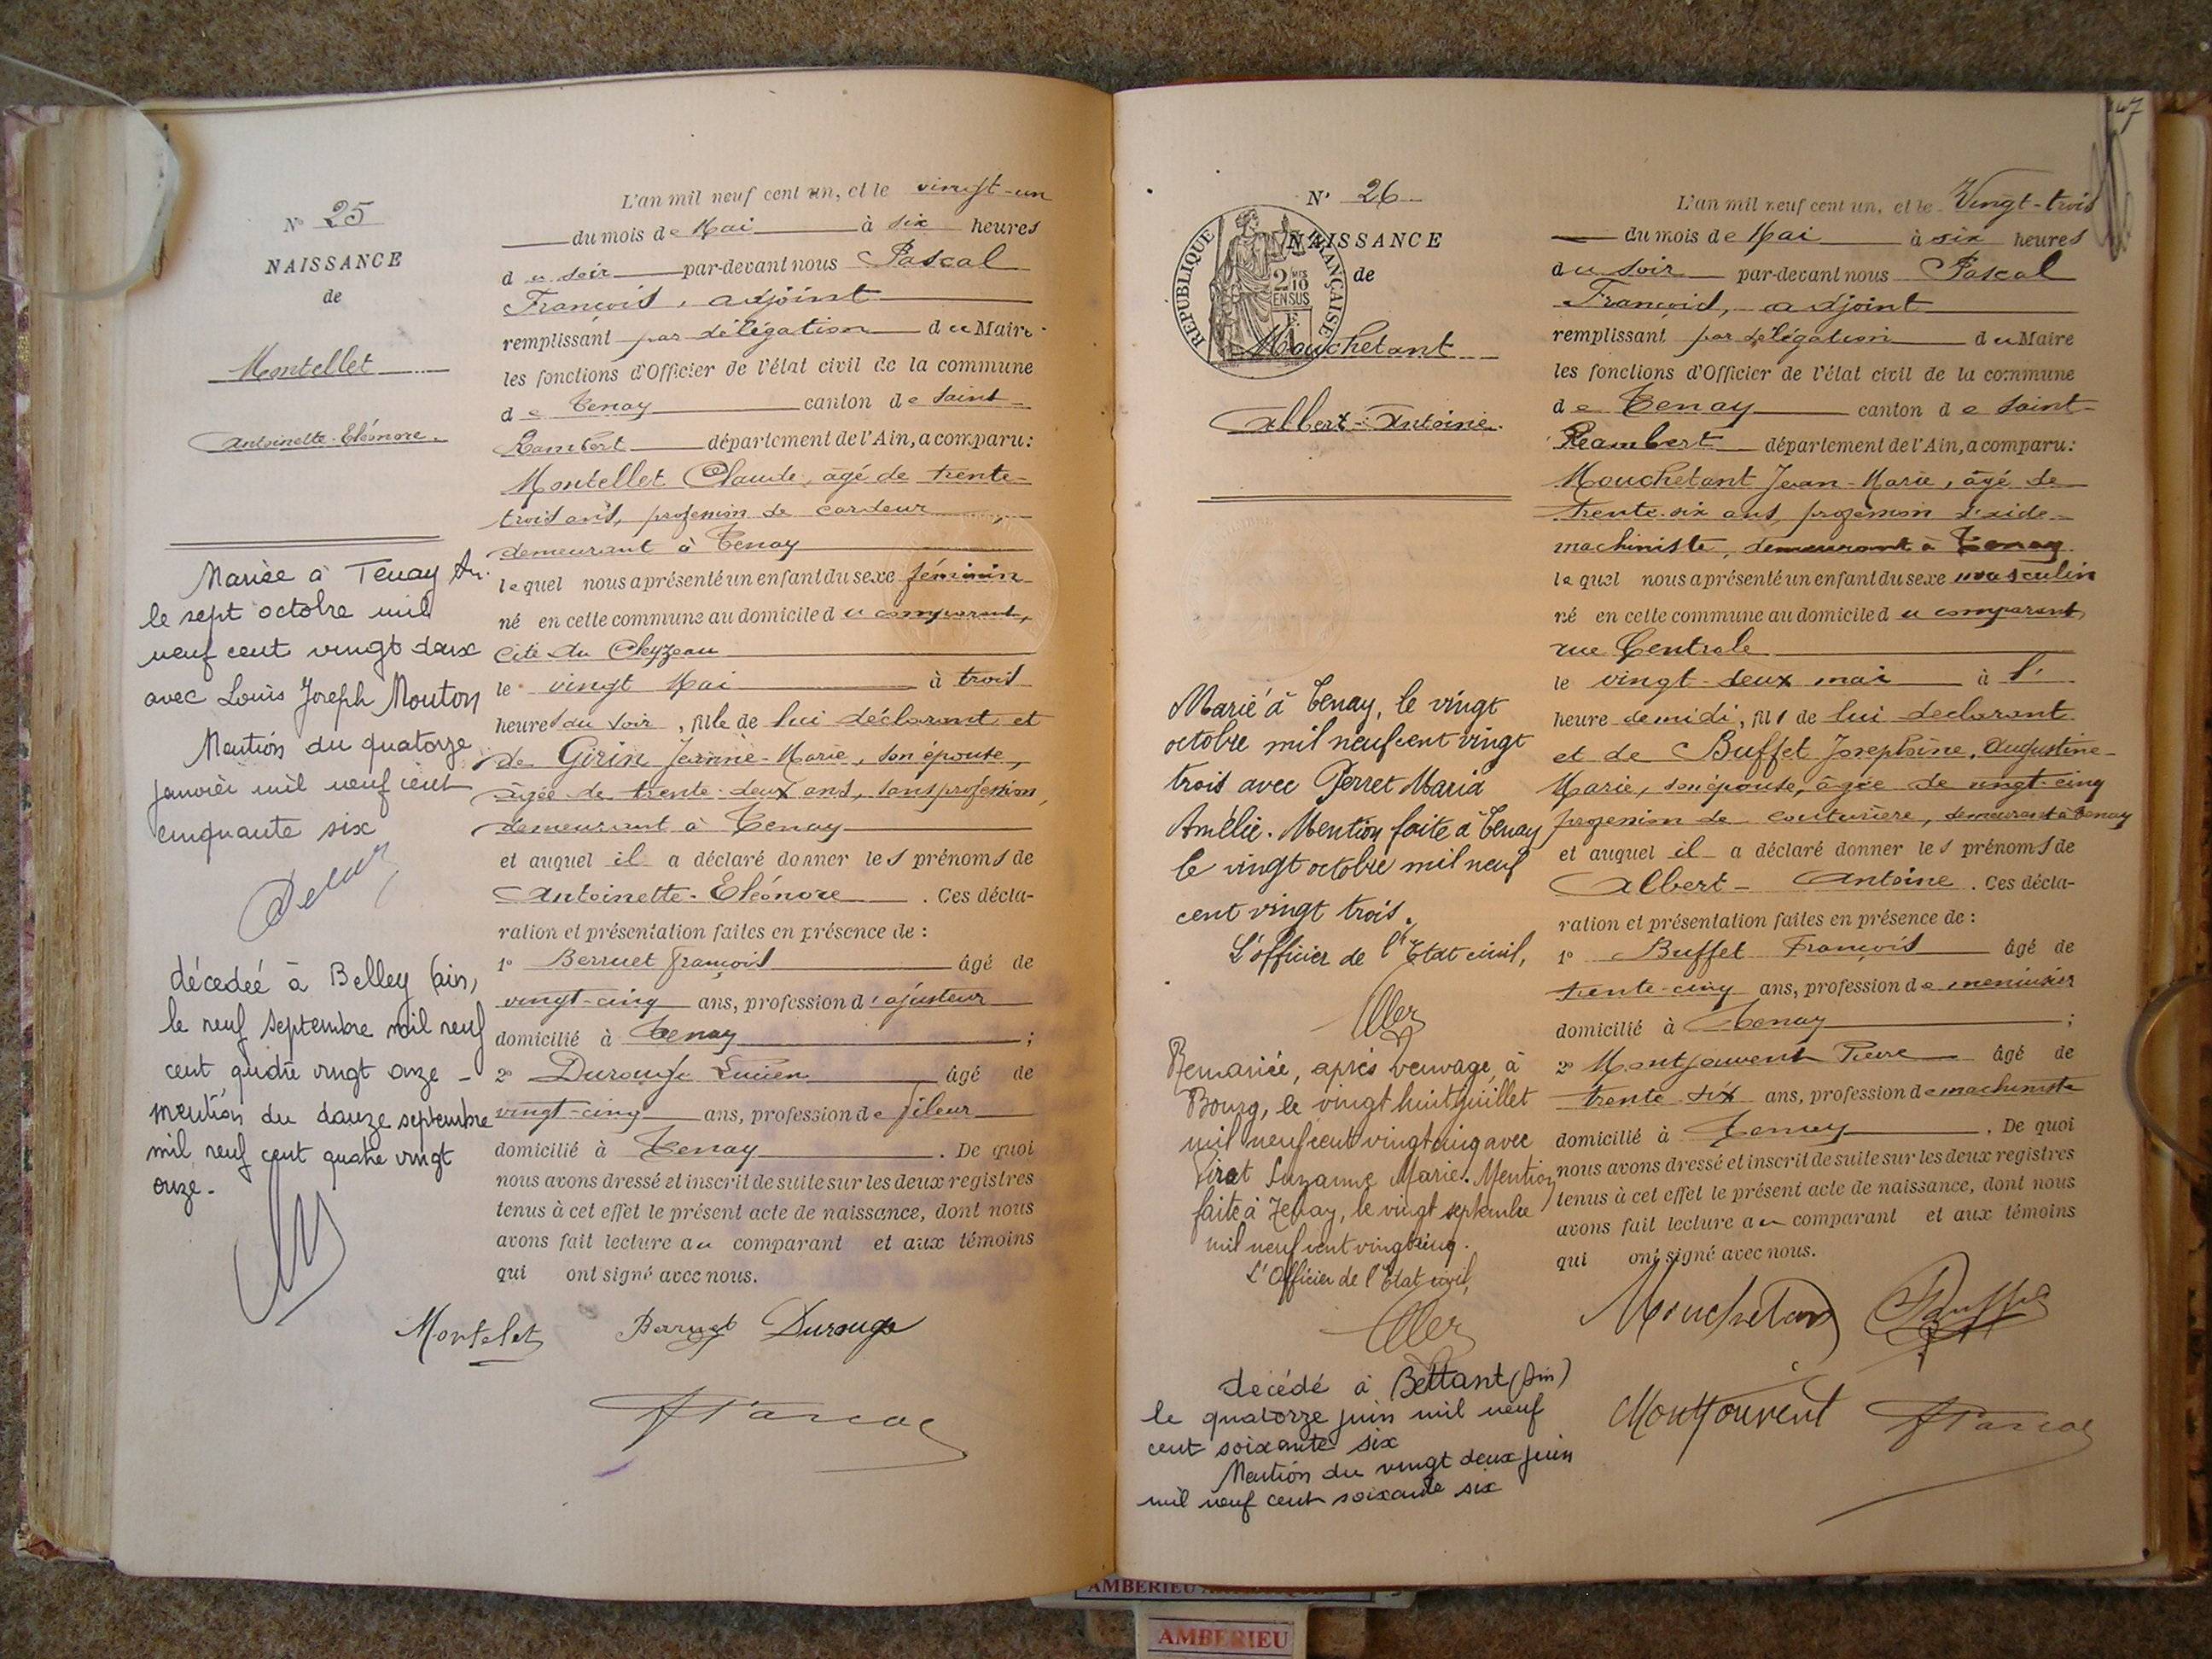 N° 25
NAISSANCE
de
Montellet
Antoinette-Eléonore.
Mariée à Tenay Ain
le sept octobre mil
neuf cent vingt deux
avec Louis Joseph Mouton
Mention du quatorze
janvier mil neuf cent
cinquante six
décedeé à Belley (ain,
le neuf septembre mil neuf
cent quatre vingt onze -
mention du douze septembre
mil neuf cent quatre vingt
onze -
L'an mil neuf cent un, et le vingt-un
du mois de Mai à six heures
du soir par-devant nous Pascal
François, adjoint
remplissant par délégation du Maire
les fonctions d'Officier de l'état civil de la commune
de Tenay canton de Saint-
Rambert département de l'Ain, a comparu:
Montellet Claude, âgé de trente-
trois ans, profession de cardeur
demeurant à Tenay
lequel nous a présenté un enfant du sexe féminin
né en cette commune au domicile du comparant,
Cité du Cleyzeau
le vingt Mai à trois
heures du soir, fille de lui déclarant et
de Girin Jeanne-Marie, son épouse,
âgée de trente-deux ans, sans profession,
demeurant à Tenay
et auquel il a déclaré donner les prénoms de
Antoinette-Eléonore. Ces décla-
ration et présentation faites en présence de :
1° Berruet François âgé de
vingt-cinq ans, profession d'ajusteur
domicilié à Tenay ;
2° Durouge Lucien âgé de
vingt-cinq ans, profession de fileur
domicilié à Tenay. De quoi
nous avons dressé et inscrit de suite sur les deux registres
tenus à cet effet le présent acte de naissance, dont nous
avons fait lecture au comparant et aux témoins
qui ont signé avec nous.
Montelet Berruet Durouge
FPascal
47
N° 26
NAISSANCE
de
RÉPUBLIQUE FRANÇAISE
2 10
EN SUS
Mouchetant
Albert-Antoine.
Marié à Tenay, le vingt
octobre mil neuf cent vingt
trois avec Perret Maria
Amélie. Mention faite à Tenay
le vingt octobre mil neuf
cent vingt trois.
L'officier de l'Etat civil,
Remariée, après veuvage, à
Bourg, le vingt huit juillet
mil neuf cent vingt cinq avec
Suzanne Marie. Mention
faite à Tenay, le vingt septembre
mil neuf cent vingt cinq.
L'Officier de l'Etat civil,
décédé à Bettant (Ain)
le quatorze juin mil neuf
cent soixante six
Mention du vingt deux juin
mil neuf cent soixante six
L'an mil neuf cent un, et le Vingt-trois
du mois de Mai à six heures
du soir par-devant nous Pascal
François, adjoint
remplissant par délégation du Maire
les fonctions d'Officier de l'état civil de la commune
de Tenay canton de Saint-
Rambert département de l'Ain, a comparu:
Mouchetant Jean-Marie, âgé de
trente-six ans, profession d'aide-
machiniste, demeurant à Tenay
lequel nous a présenté un enfant du sexe masculin
né en cette commune au domicile du comparant,
rue Centrale
le vingt-deux mai à l'
heure de midi, fils de lui declarant
et de Buffet Josephine, Augustine-
Marie, son épouse, âgée de vingt-cinq
profession de couturière, demeurant à Tenay
et auquel il a déclaré donner les prénoms de
Albert-Antoine. Ces décla-
ration et présentation faites en présence de :
1° Buffet François âgé de
trente-cinq ans, profession de menuisier
domicilié à Tenay ;
2° Montjouvent Pierre âgé de
trente-six ans, profession de machiniste
domicilié à Tenay. De quoi
nous avons dressé et inscrit de suite sur les deux registres
tenus à cet effet le présent acte de naissance, dont nous
avons fait lecture au comparant et aux témoins
qui ont signé avec nous.
Mouchetant Buffet
Montjouvent FPascal
AMBERIEU
AMBERIEU